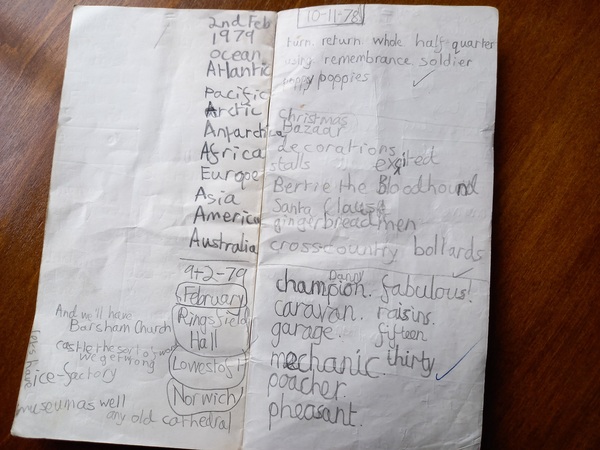 2nd Feb
1979
ocean
Atlantic
Pacific
Arctic
Antarctica
Africa
Europe
Asia
America
Australia
9-2-79
February
Ringsfield
Hall
Lowestoft
Norwich
And we'll have
Barsham Church
castle the sort of
we get wrong
ice-factory
museum as well
any old cathedral
10-11-78
turn return whole half quarter
using remembrance soldier
poppy poppies
Christmas
Bazaar
decorations
stalls excited
Bertie the Bloodhound
Santa Clause
gingerbread men
crosscountry bollards
Danny
champion. fabulous!
caravan. raisins.
garage. fifteen
mechanic. thirty
poacher.
pheasant.